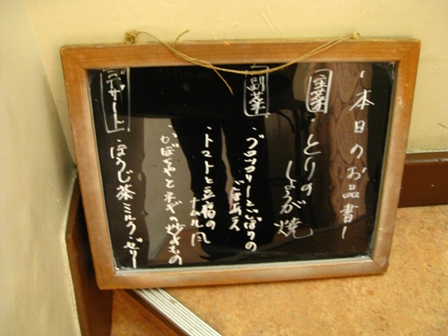 ～本日のお品書～
主菜
・とりの
しょうが焼
副菜
・ブロッコリーとごぼうの
ごまあえ
・トマトと豆腐の
ナムル風
・かぼちゃと
炒めもの
デザート
・ほうじ茶ミルクゼリー